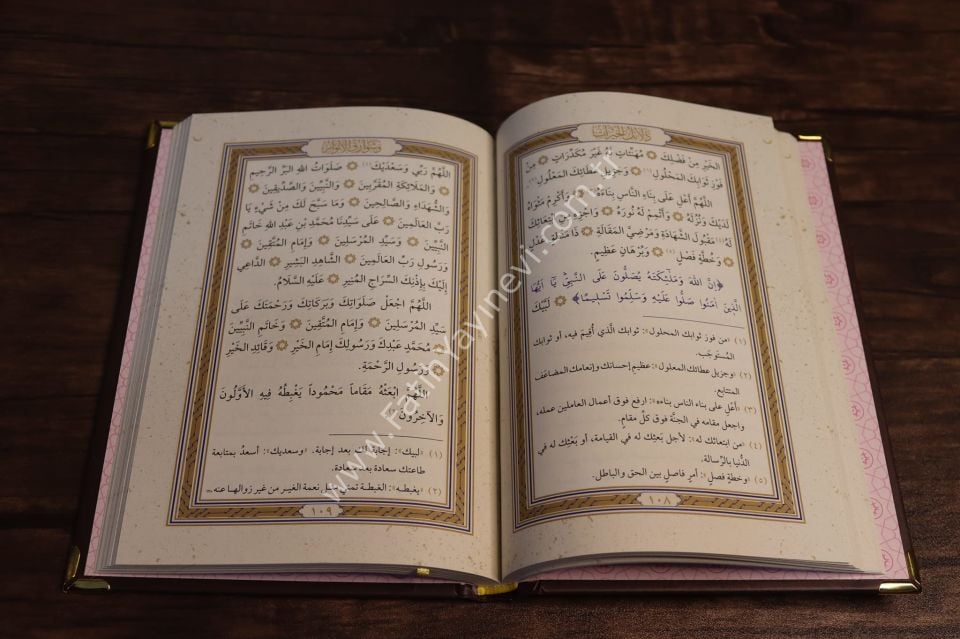 دلائل الخيرات
الخَيْرِ مِنْ فَضْلِكَ ۞ مُهَنَّئَاتٍ لَهُ غَيْرَ مُكَدَّرَاتٍ ۞ مِنْ
فَوْزِ ثَوَابِكَ المَحْلُولِ(١) ۞ وَجَزِيلِ عَطَائِكَ المَعْلُولِ(٢).
اللَّهُمَّ أَعْلِ عَلَى بِنَاءِ النَّاسِ بِنَاءَهُ(٣) ۞ وَأَكْرِمْ مَثْوَاهُ
لَدَيْكَ وَنُزُلَهُ ۞ وَأَتْمِمْ لَهُ نُورَهُ ۞ وَاجْزِهِ مِنِ ابْتِعَاثِكَ
لَهُ(٤) مَقْبُولَ الشَّهَادَةِ وَمَرْضِيَّ المَقَالَةِ ۞ ذَا مَنْطِقٍ عَدْلٍ
۞ وَخُطَّةٍ فَصْلٍ(٥) ۞ وَبُرْهَانٍ عَظِيمٍ.
﴿إِنَّ اللهَ وَمَلٰٓئِكَتَهُ يُصَلُّونَ عَلَى النَّبِيِّ يَٓا اَيُّهَا
الَّذِينَ اٰمَنُوا صَلُّوا عَلَيْهِ وَسَلِّمُوا تَسْلِيمًا﴾ ۞ لَبَّيْكَ
(١) «من فوز ثوابك المحلول»: ثوابك الَّذي أُقِيمَ فيه، أو ثوابك
المُستَوجَب.
(٢) «وجزيل عطائك المعلول»: عظيم إحسانك وإنعامك المضاعف
المتتابع.
(٣) «أعْلِ على بناء الناس بناءه»: ارفع فوق أعمال العاملين عمله،
واجعل مقامه في الجنَّة فوق كلِّ مقامٍ.
(٤) «من ابتعاثك له»: لأجل بَعثِك له في القيامة، أو بَعْثِك له في
الدُّنيا بالرِّسالة.
(٥) «وخطةٍ فصلٍ»: أمرٍ فاصلٍ بين الحق والباطل.
١٠٨
وشوارق الأنوار
اللَّهُمَّ رَبِّي وَسَعْدَيْكَ(١) ۞ صَلَوَاتُ اللهِ البَرِّ الرَّحِيمِ
۞ وَالمَلَائِكَةِ المُقَرَّبِينَ ۞ وَالنَّبِيِّينَ وَالصِّدِّيقِينَ ۞
وَالشُّهَدَاءِ وَالصَّالِحِينَ ۞ وَمَا سَبَّحَ لَكَ مِنْ شَيْءٍ يَا
رَبَّ العَالَمِينَ ۞ عَلَى سَيِّدِنَا مُحَمَّدِ بْنِ عَبْدِ اللهِ خَاتَمِ
النَّبِيِّينَ ۞ وَسَيِّدِ المُرْسَلِينَ ۞ وَإِمَامِ المُتَّقِينَ ۞
وَرَسُولِ رَبِّ العَالَمِينَ ۞ الشَّاهِدِ البَشِيرِ ۞ الدَّاعِي
إِلَيْكَ بِإِذْنِكَ السِّرَاجِ المُنِيرِ ۞ عَلَيْهِ السَّلَامُ.
اللَّهُمَّ اجْعَلْ صَلَوَاتِكَ وَبَرَكَاتِكَ وَرَحْمَتَكَ عَلَى
سَيِّدِ المُرْسَلِينَ ۞ وَإِمَامِ المُتَّقِينَ ۞ وَخَاتَمِ النَّبِيِّينَ
۞ مُحَمَّدٍ عَبْدِكَ وَرَسُولِكَ إِمَامِ الخَيْرِ ۞ وَقَائِدِ الخَيْرِ
۞ وَرَسُولِ الرَّحْمَةِ.
اللَّهُمَّ ابْعَثْهُ مَقَاماً مَحْمُوداً يَغْبِطُهُ فِيهِ الأَوَّلُونَ
وَالآخِرُونَ(٢)
(١) «لبيك»: إجابةً لك بعد إجابة. «وسعديك»: أسعدُ بمتابعة
طاعتك سعادة بعد سعادة.
(٢) «يغبطه»: الغبطة تمني مثل نعمة الغير من غير زوالها عنه
١٠٩
www.FatihYayinevi.com.tr